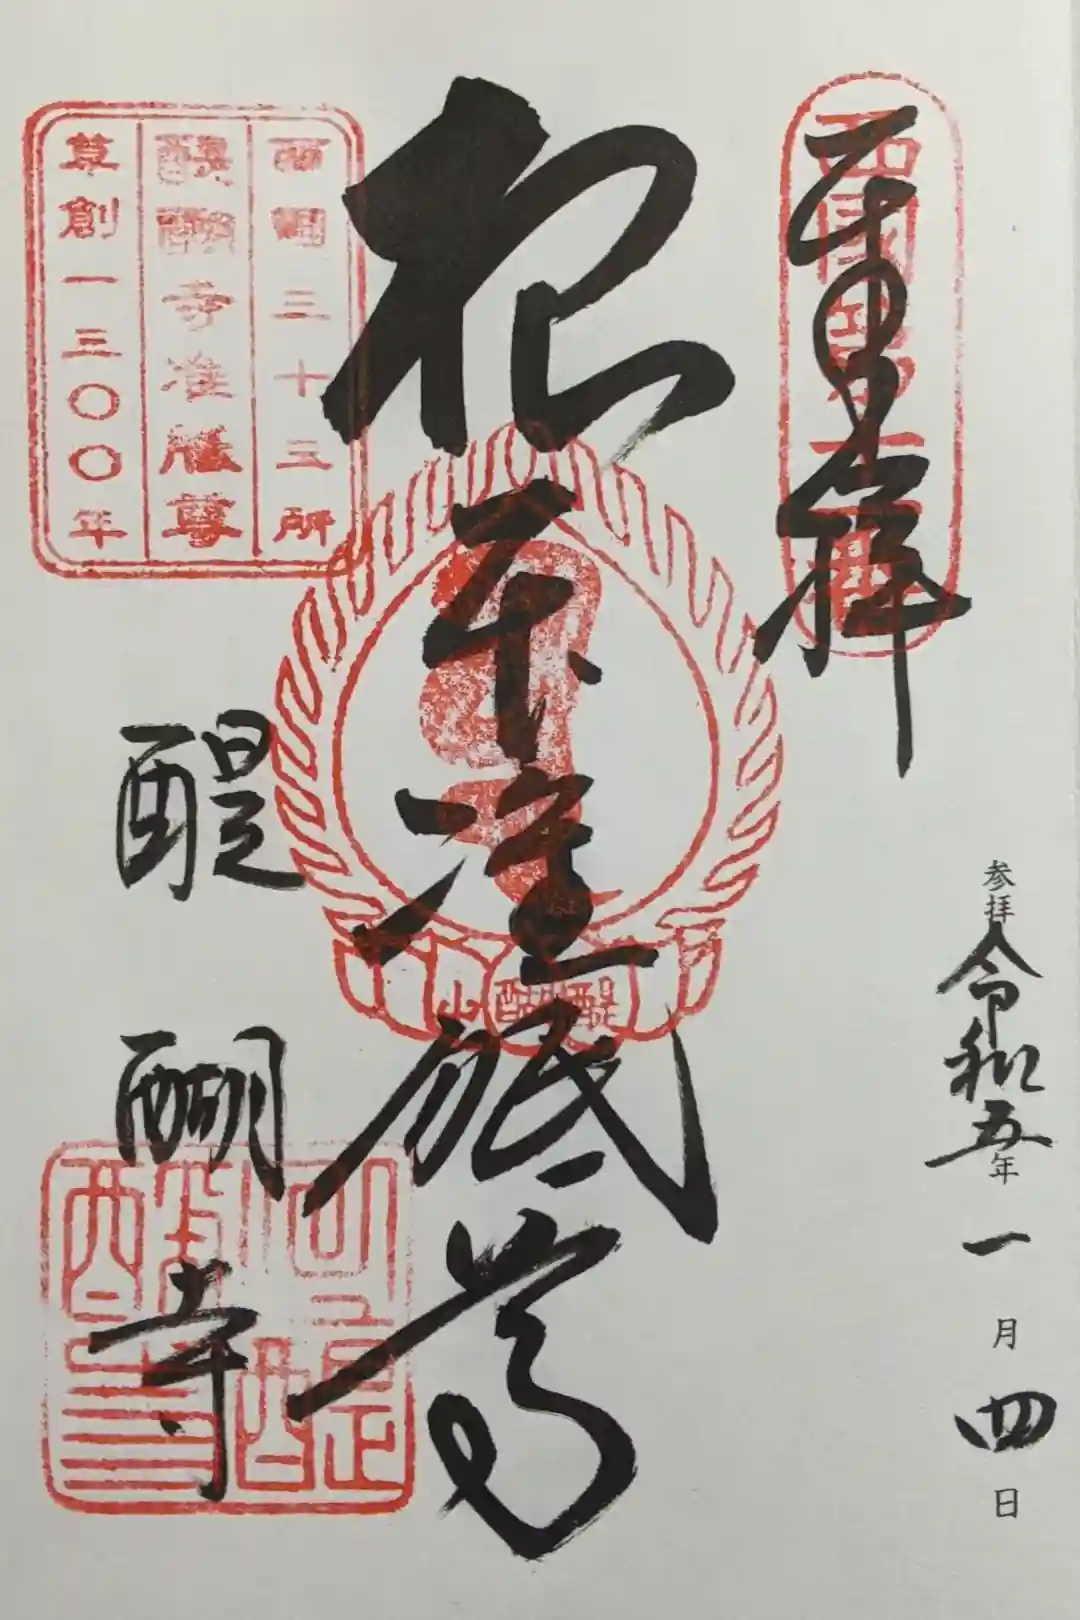 奉拝
西國第十一番
参拝
令和五年一月四日
根本准胝尊
醍醐山
西國三十三所
醍醐寺准胝尊
草創一三〇〇年
醍醐寺